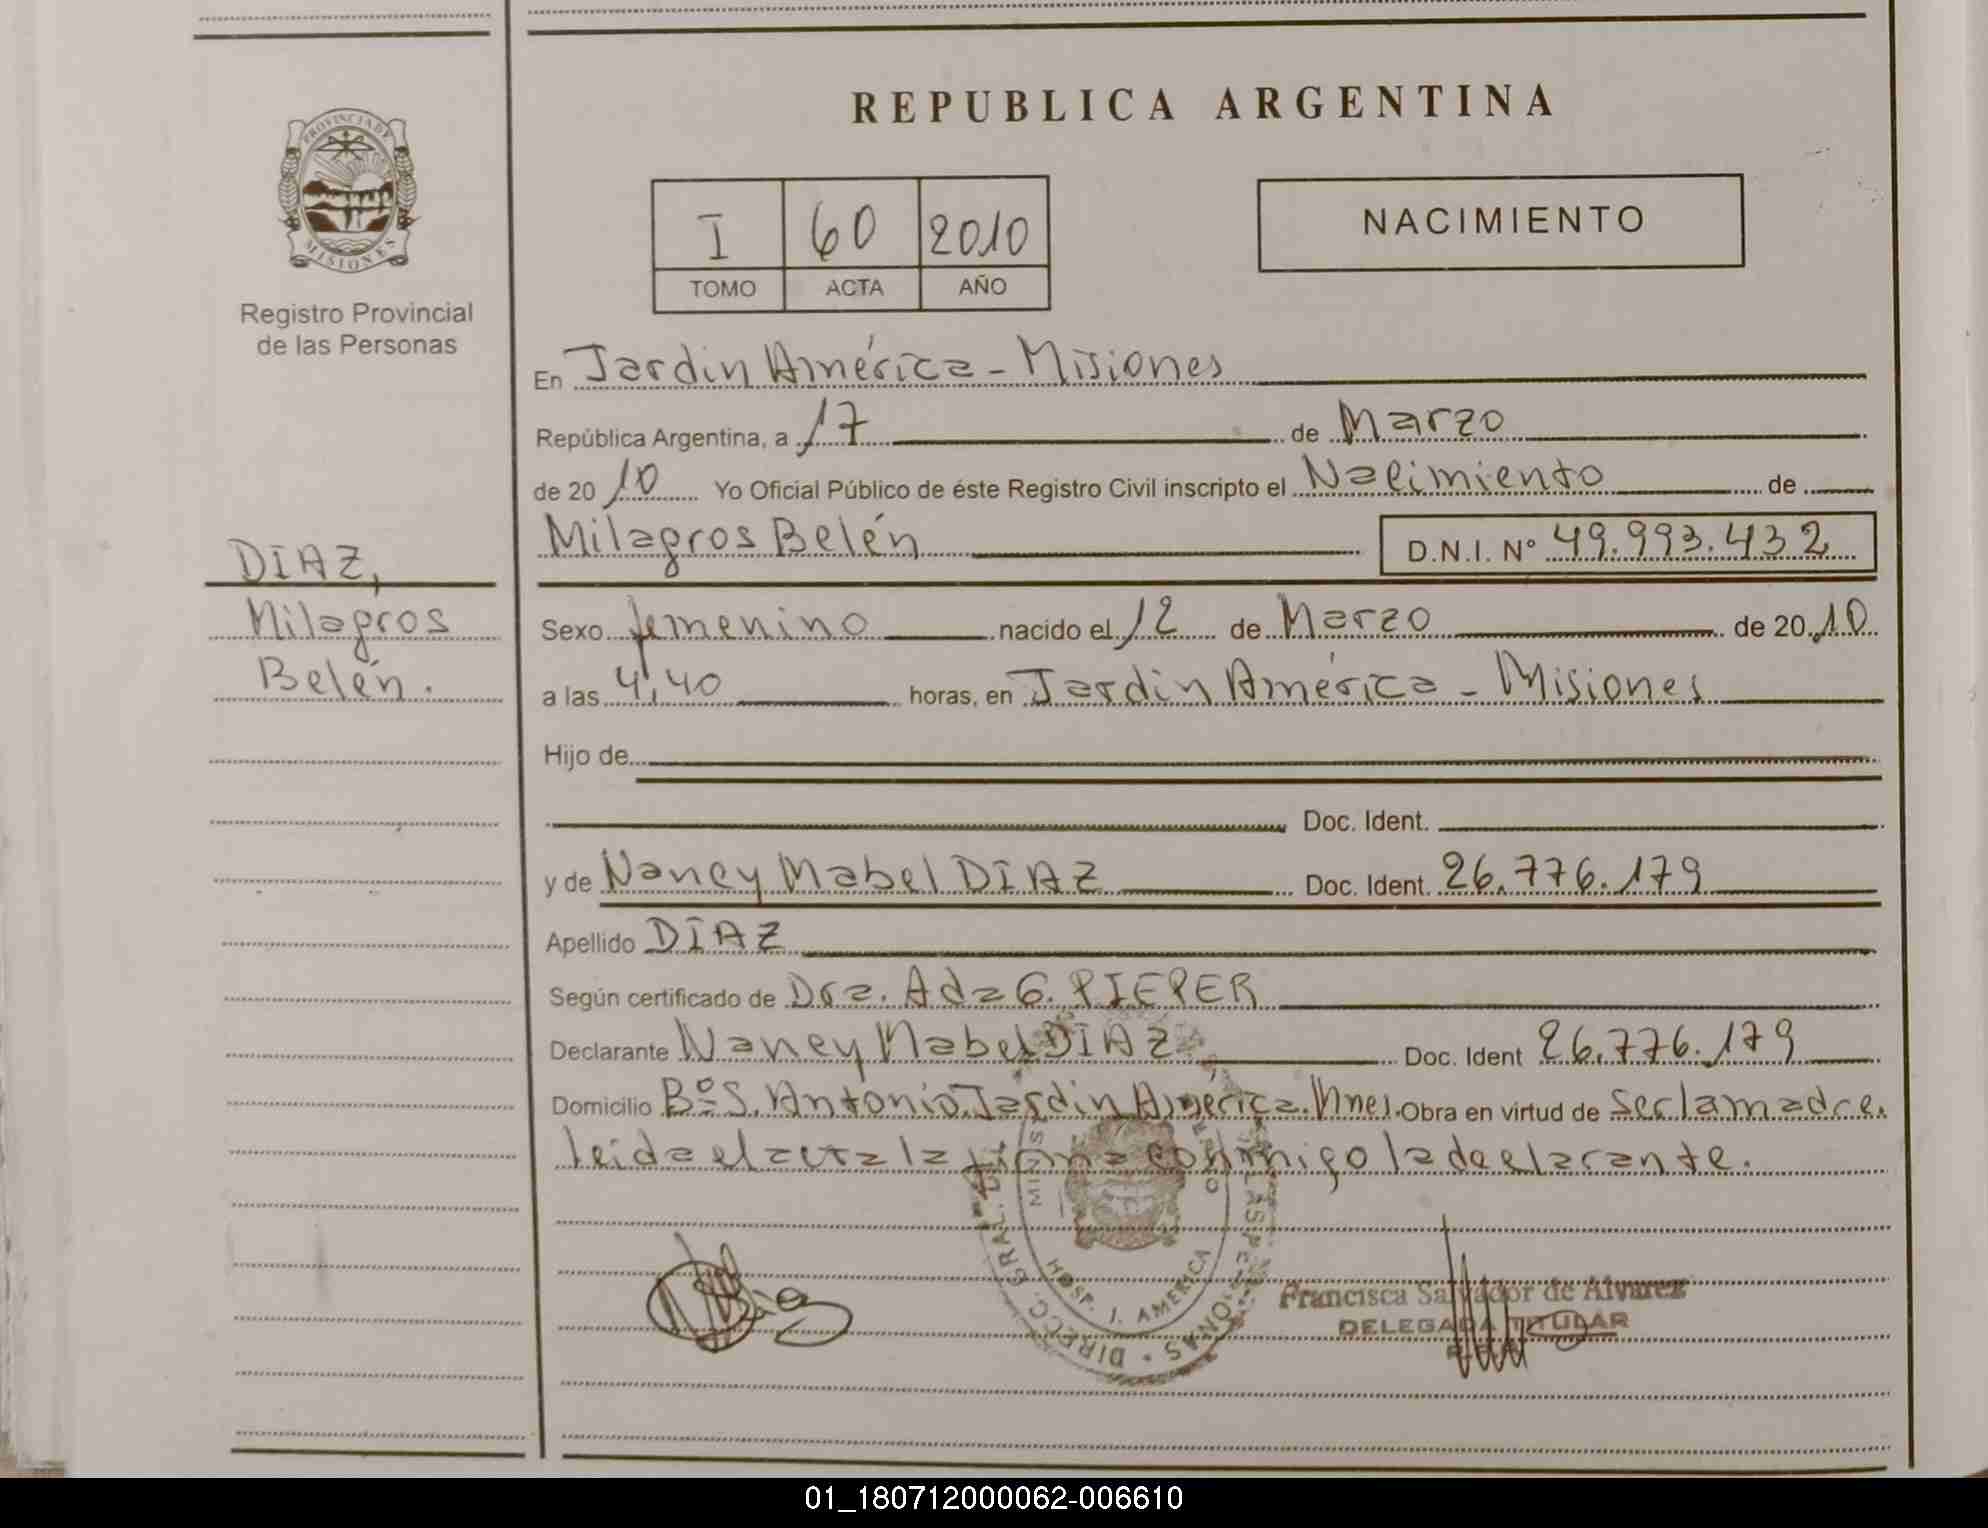 REPUBLICA ARGENTINA
PROVINCIA DE
MISIONES
Registro Provincial
de las Personas
I 60 2010
TOMO ACTA AÑO
NACIMIENTO
En Jardin América - Misiones
República Argentina, a 17 de Marzo
de 20 10 Yo Oficial Público de éste Registro Civil inscripto el Nacimiento de
Milagros Belén D.N.I. Nº 49.993.432
DIAZ,
Milagros
Belén.
Sexo femenino nacido el 12 de Marzo de 20 10
a las 4,40 horas, en Jardin América - Misiones
Hijo de
Doc. Ident.
y de Nancy Mabel DIAZ Doc. Ident. 26.776.179
Apellido DIAZ
Según certificado de Dra. Ada G. PIEPER
Declarante Nancy Mabel DIAZ Doc. Ident 26.776.179
Domicilio Bº S. Antonio. Jardin América. Mnes. Obra en virtud de ser la madre.
leida el acta la firma conmigo la declarante.
DIRECC. GRAL.
HOSP. J. AMERICA
Francisca Salvador de Alvarez
DELEGADA TITULAR
01_180712000062-006610